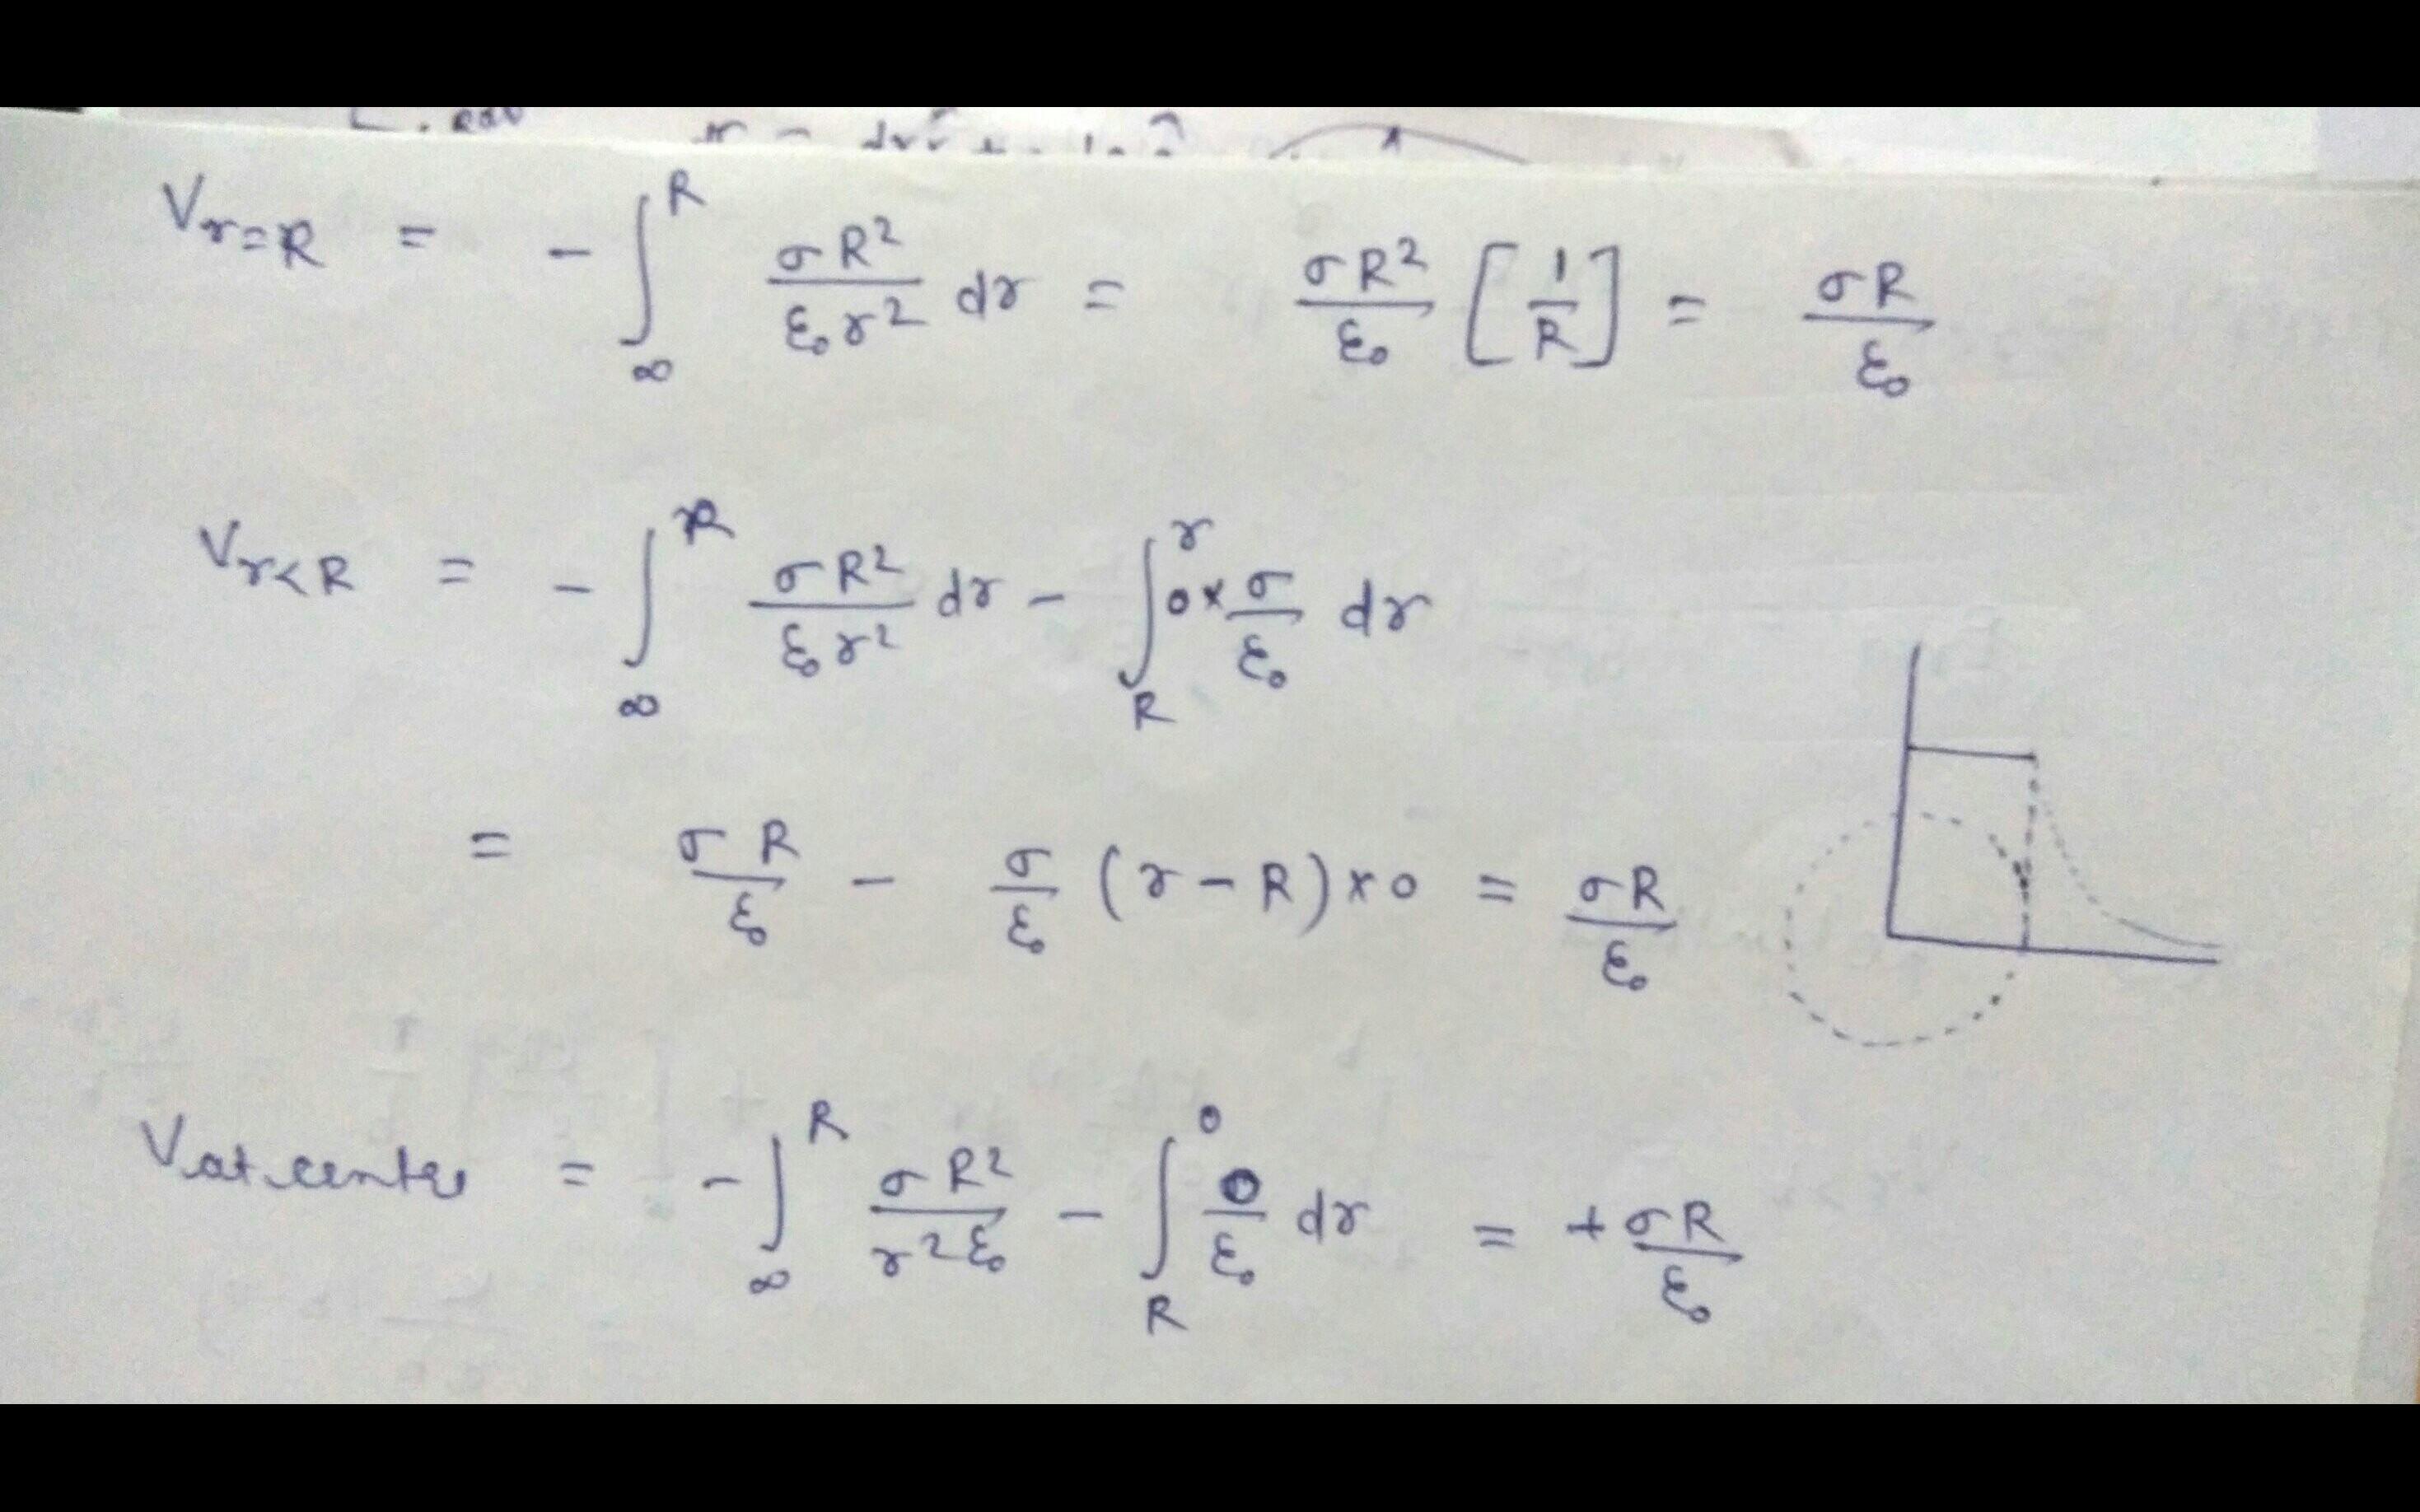 V_{r=R} = - ∫_∞^R σR²/ε₀r² dr = σR²/ε₀ [1/R] = σR/ε₀
V_{r<R} = - ∫_∞^R σR²/ε₀r² dr - ∫_R^r 0×σ/ε₀ dr
= σR/ε₀ - σ/ε₀ (r-R)×0 = σR/ε₀
V_{at centre} = - ∫_∞^R σR²/r²ε₀ - ∫_R^0 0/ε₀ dr = +σR/ε₀